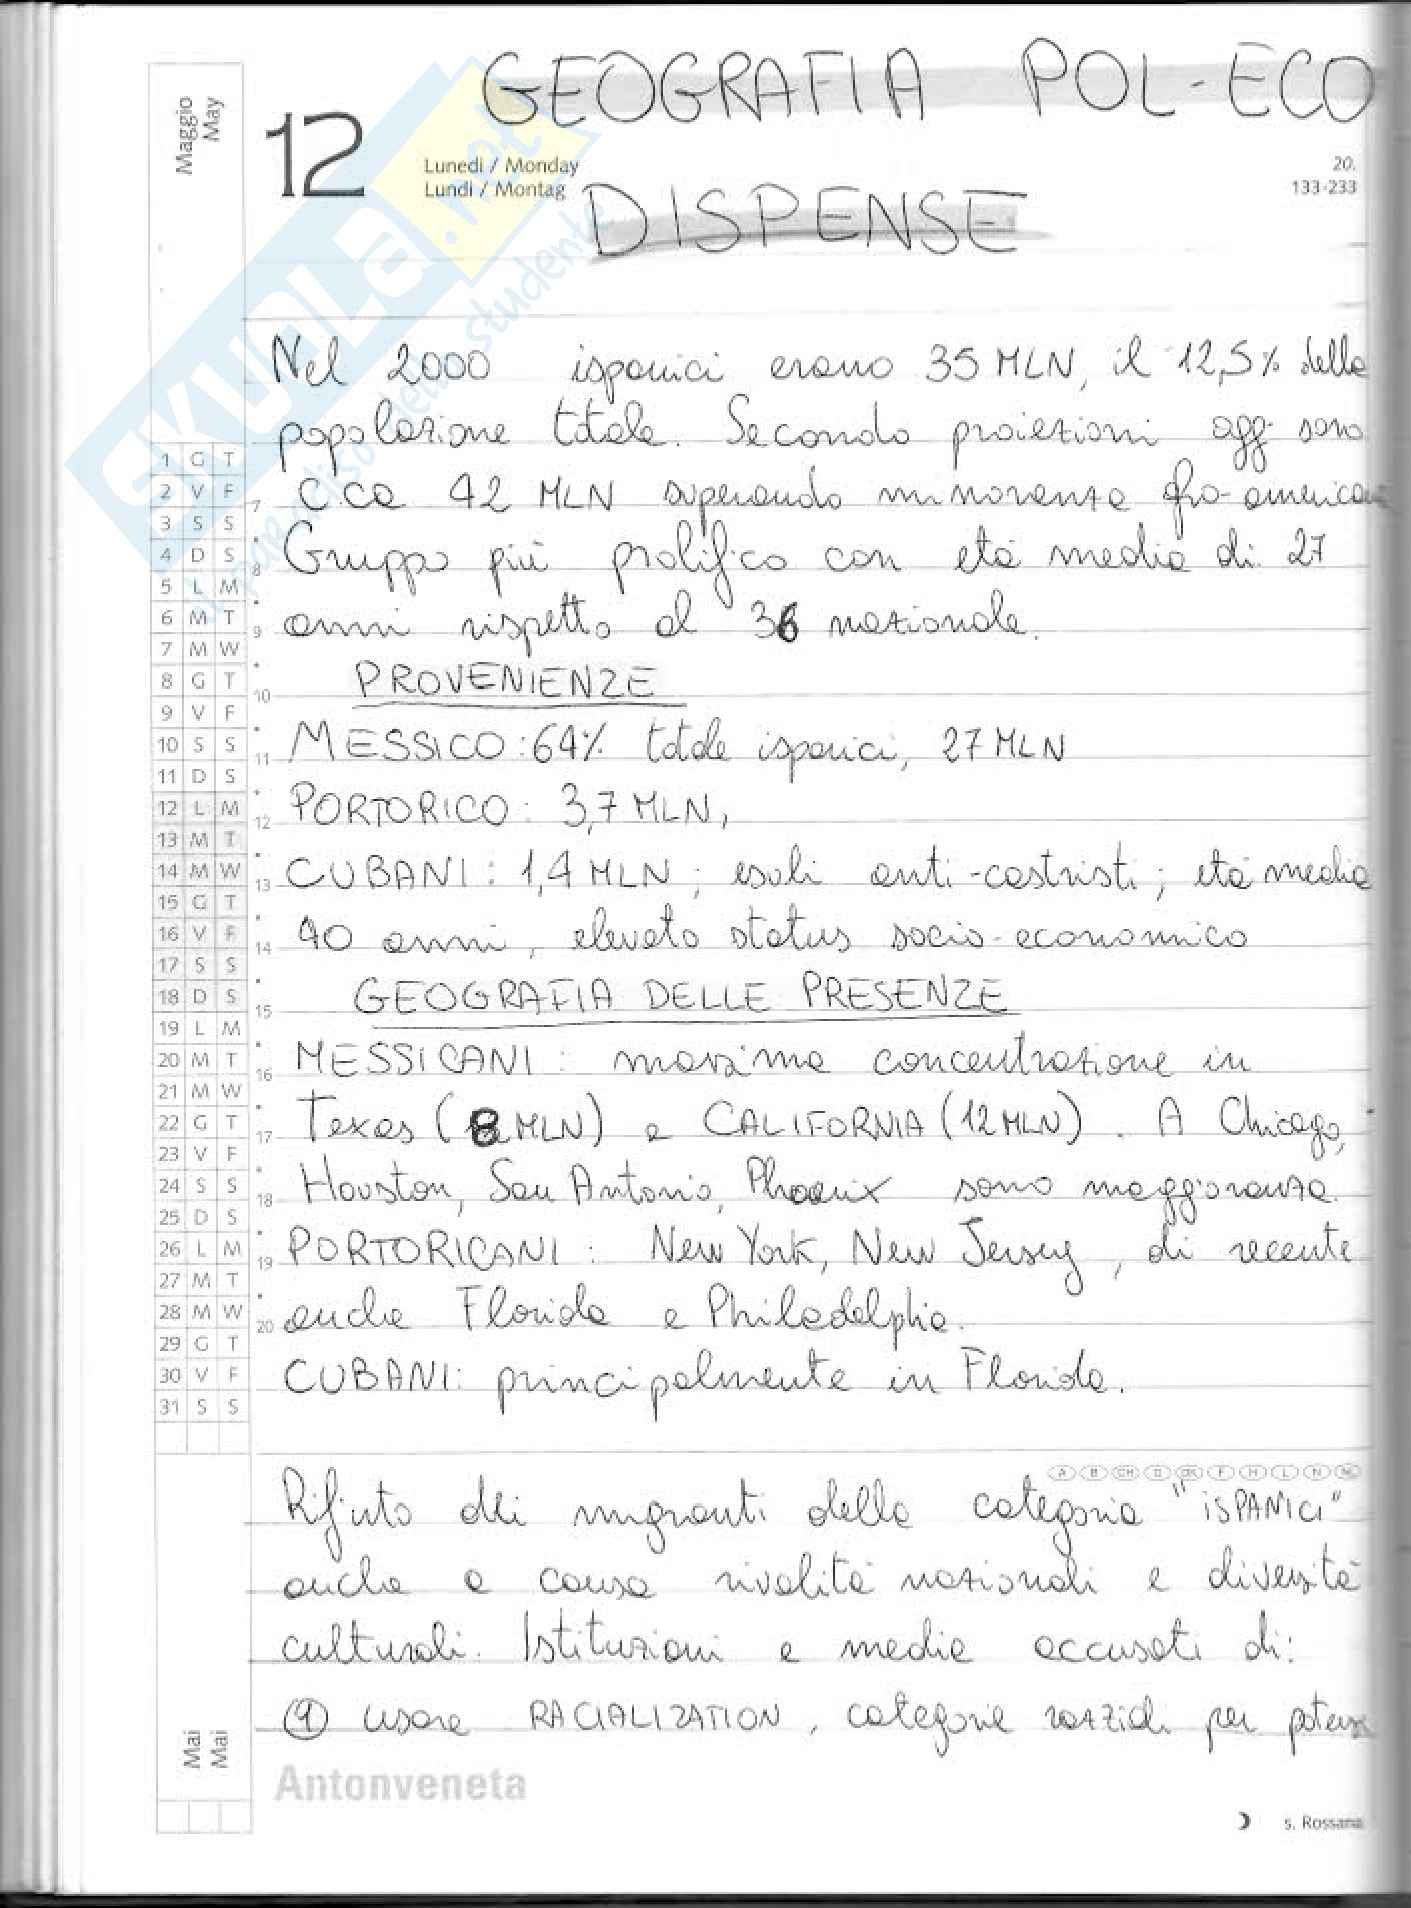 GEOGRAFIA POL-ECO
Maggio
May
12
Lunedì / Monday
Lundi / Montag
20.
133-233
DISPENSE
SKUOLA.net
Nel 2000 ispanici erano 35 MLN, il 12,5% della
popolazione totale. Secondo proiezioni ogg sono
c.ca 42 MLN superando minoranza afro-americana
Gruppo più prolifico con età media di 27
anni rispetto al 36 nazionale.
PROVENIENZE
MESSICO: 64% totale ispanici, 27 MLN
PORTORICO: 3,7 MLN,
CUBANI: 1,4 MLN; esuli anti-castristi; età media
40 anni, elevato status socio-economico
GEOGRAFIA DELLE PRESENZE
MESSICANI: massima concentrazione in
Texas (8 MLN) e CALIFORNIA (12 MLN). A Chicago,
Houston, San Antonio, Phoenix sono maggioranza.
PORTORICANI: New York, New Jersey, di recente
anche Florida e Philadelphia.
CUBANI: principalmente in Florida.
Rifiuto dei migranti della categoria "iSPANICI"
anche a causa rivalità nazionali e diversità
culturali. Istituzioni e media accusati di:
① usare RACIALIZATION, categorie razziali per
1 G T
2 V F
3 S S
4 D S
5 L M
6 M T
7 M W
8 G T
9 V F
10 S S
11 D S
12 L M
13 M T
14 M W
15 G T
16 V F
17 S S
18 D S
19 L M
20 M T
21 M W
22 G T
23 V F
24 S S
25 D S
26 L M
27 M T
28 M W
29 G T
30 V F
31 S S
7
8
9
10
11
12
13
14
15
16
17
18
19
20
A B CH D DK F H L N NL
Mai
Mai
Antonveneta
s. Rossana